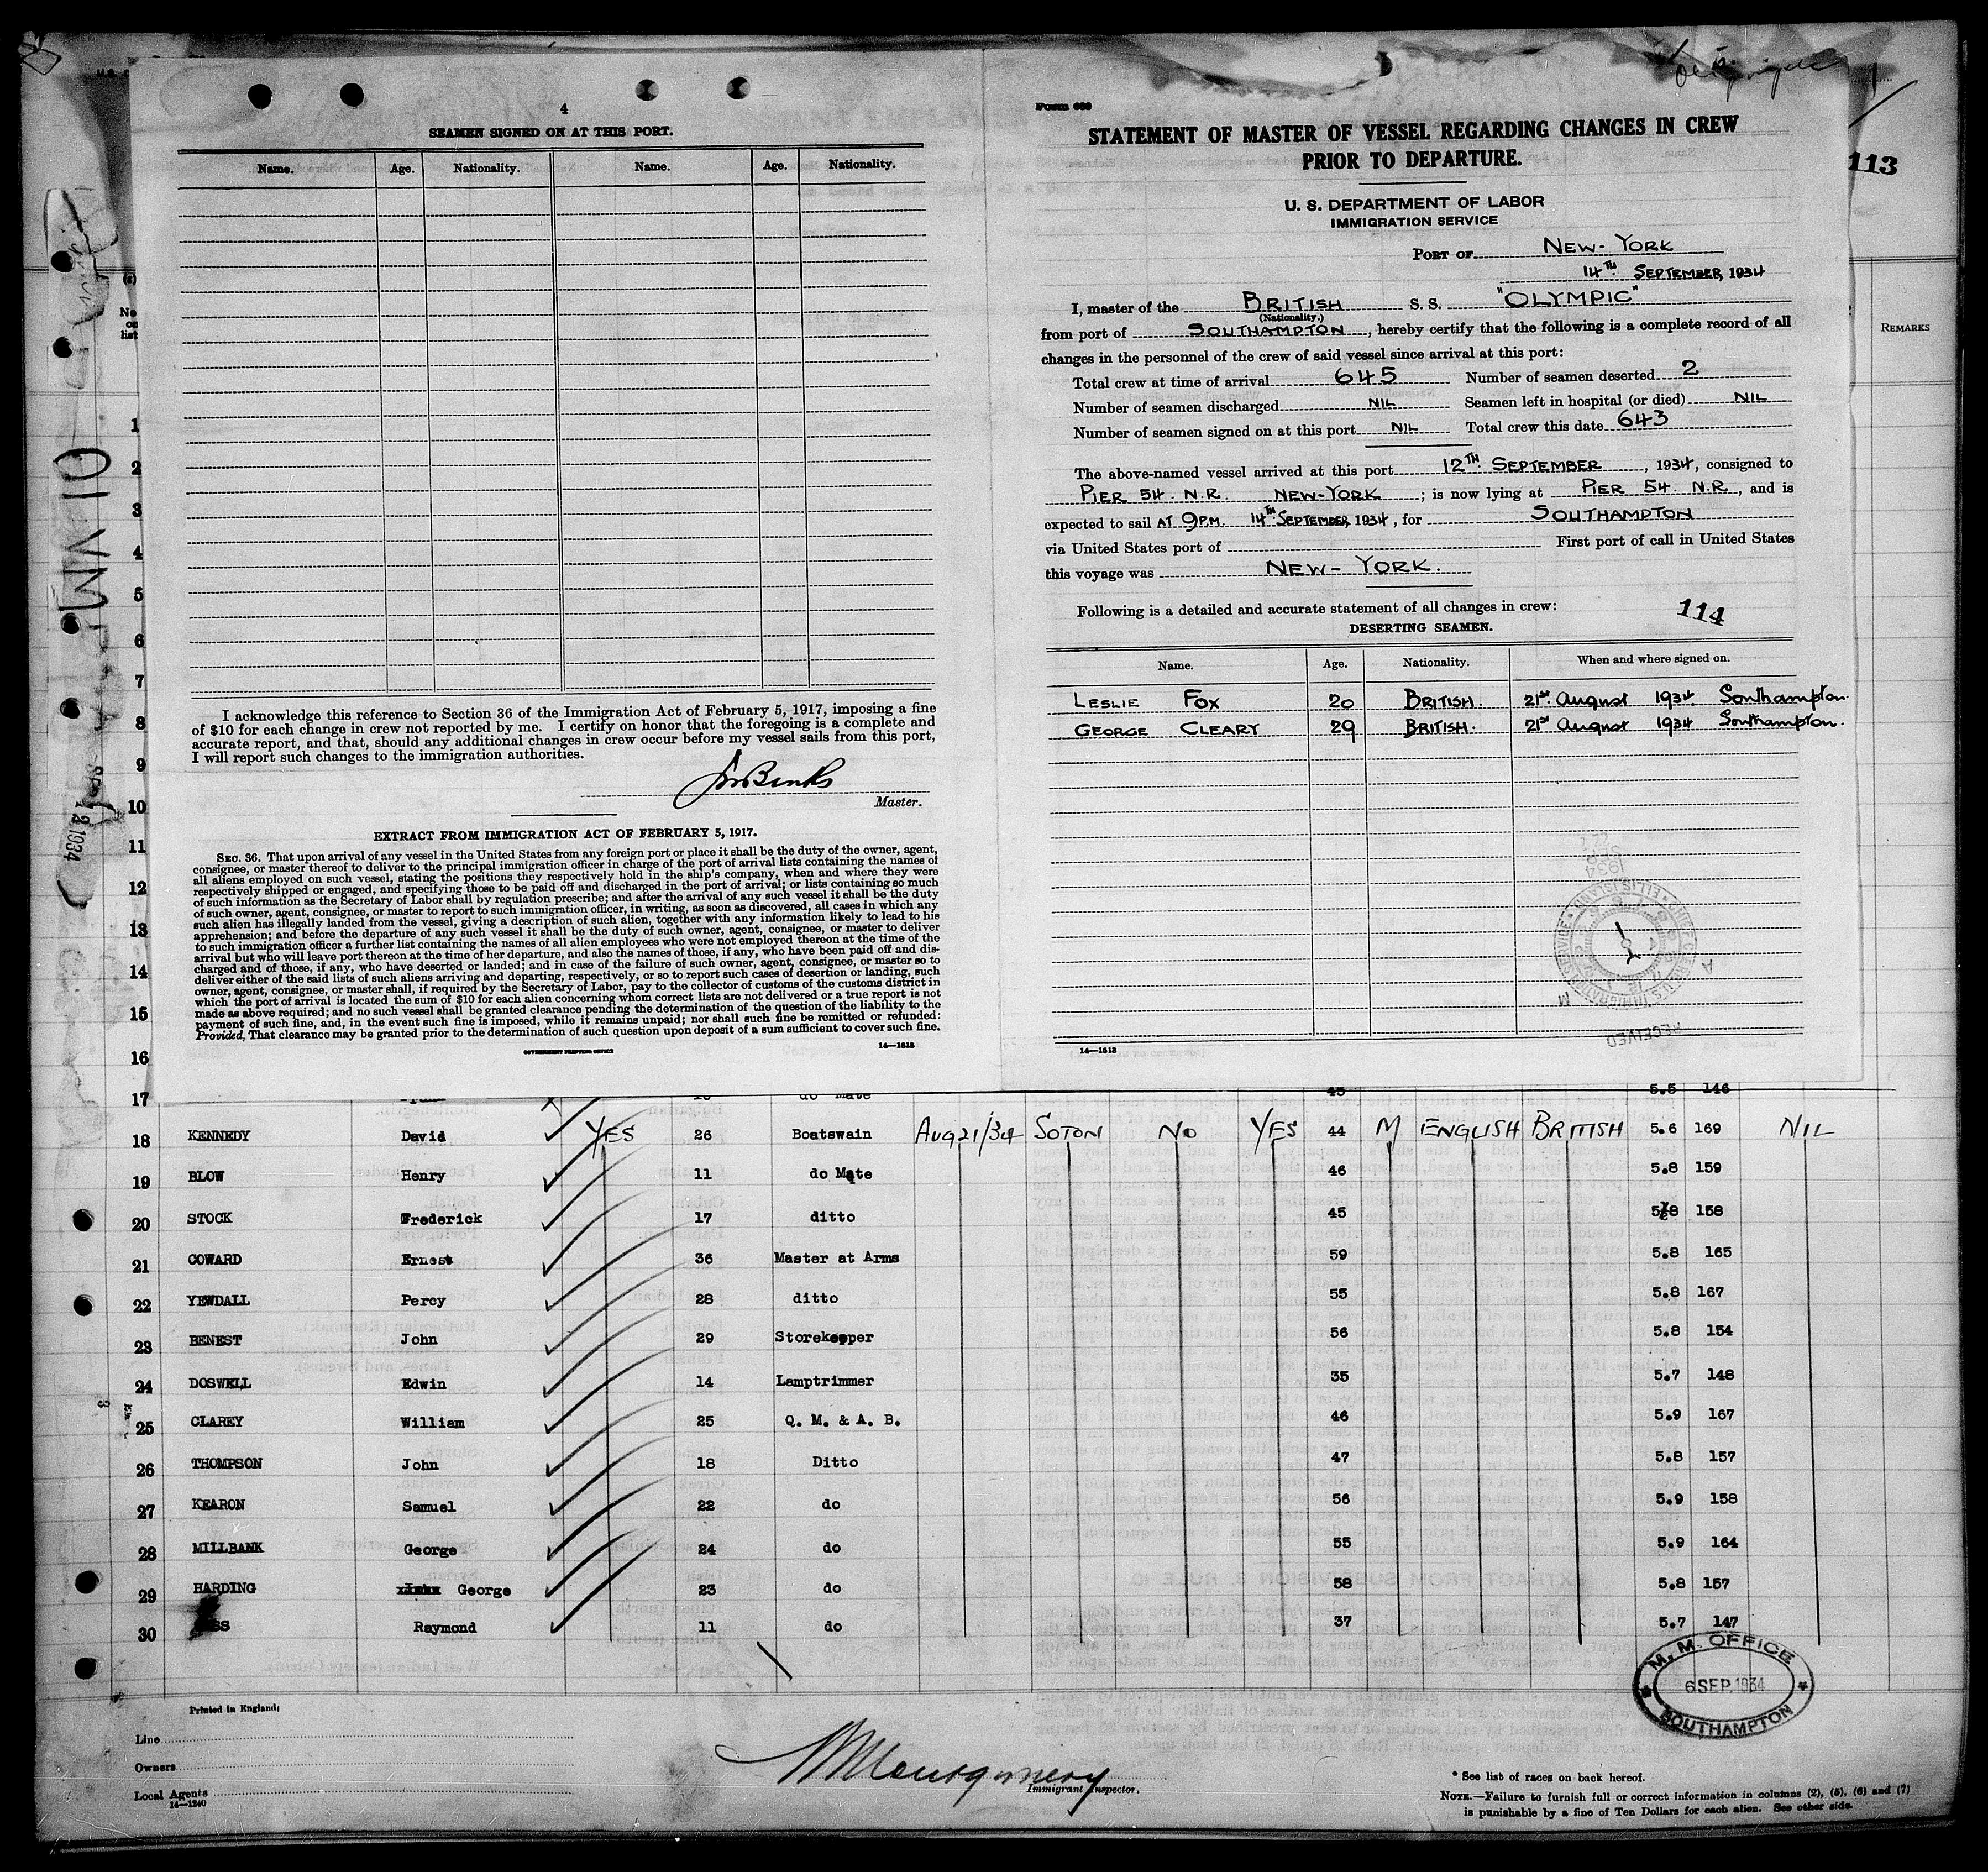 4
SEAMEN SIGNED ON AT THIS PORT.
Name. Age. Nationality. Name. Age. Nationality.
I acknowledge this reference to Section 36 of the Immigration Act of February 5, 1917, imposing a fine
of $10 for each change in crew not reported by me. I certify on honor that the foregoing is a complete and
accurate report, and that, should any additional changes in crew occur before my vessel sails from this port,
I will report such changes to the immigration authorities.
Master.
EXTRACT FROM IMMIGRATION ACT OF FEBRUARY 5, 1917.
SEC. 36. That upon arrival of any vessel in the United States from any foreign port or place it shall be the duty of the owner, agent,
consignee, or master thereof to deliver to the principal immigration officer in charge of the port of arrival lists containing the names of
all aliens employed on such vessel, stating the positions they respectively hold in the ship's company, when and where they were
respectively shipped or engaged, and specifying those to be paid off and discharged in the port of arrival; or lists containing so much
of such information as the Secretary of Labor shall by regulation prescribe; and after the arrival of any such vessel it shall be the duty
of such owner, agent, consignee, or master to report to such immigration officer, in writing, as soon as discovered, all cases in which any
such alien has illegally landed from the vessel, giving a description of such alien, together with any information likely to lead to his
apprehension; and before the departure of any such vessel it shall be the duty of such owner, agent, consignee, or master to deliver
to such immigration officer a further list containing the names of all alien employees who were not employed thereon at the time of the
arrival but who will leave port thereon at the time of her departure, and also the names of those, if any, who have been paid off and dis-
charged and of those, if any, who have deserted or landed; and in case of the failure of such owner, agent, consignee, or master so to
deliver either of the said lists of such aliens arriving and departing, respectively, or so to report such cases of desertion or landing, such
owner, agent, consignee, or master shall, if required by the Secretary of Labor, pay to the collector of customs of the customs district in
which the port of arrival is located the sum of $10 for each alien concerning whom correct lists are not delivered or a true report is not
made as above required; and no such vessel shall be granted clearance pending the determination of the question of the liability to the
payment of such fine, and, in the event such fine is imposed, while it remains unpaid; nor shall such fine be remitted or refunded:
Provided, That clearance may be granted prior to the determination of such question upon deposit of a sum sufficient to cover such fine.
GOVERNMENT PRINTING OFFICE 14—1613
Form 689
STATEMENT OF MASTER OF VESSEL REGARDING CHANGES IN CREW
PRIOR TO DEPARTURE.
U. S. DEPARTMENT OF LABOR
IMMIGRATION SERVICE
PORT OF NEW-YORK
14TH SEPTEMBER, 1934
I, master of the BRITISH S. S. "OLYMPIC"
(Nationality.)
from port of SOUTHAMPTON, hereby certify that the following is a complete record of all
changes in the personnel of the crew of said vessel since arrival at this port:
Total crew at time of arrival 645 Number of seamen deserted 2
Number of seamen discharged NIL Seamen left in hospital (or died) NIL
Number of seamen signed on at this port NIL Total crew this date 643
The above-named vessel arrived at this port 12TH SEPTEMBER, 1934, consigned to
PIER 54. N.R. NEW-YORK; is now lying at PIER 54. N.R., and is
expected to sail AT 9PM. 14TH SEPTEMBER, 1934, for SOUTHAMPTON
via United States port of First port of call in United States
this voyage was NEW-YORK.
Following is a detailed and accurate statement of all changes in crew: 114
DESERTING SEAMEN.
Name. Age. Nationality. When and where signed on.
LESLIE FOX 20 BRITISH 21st August 1934 Southampton.
GEORGE CLEARY 29 BRITISH. 21st August 1934 Southampton.
RECEIVED
14—1613
113
REMARKS
No
on
list
OLYMP
SEP 12 1934
1
2
3
4
5
6
7
8
9
10
11
12
13
14
15
16
17 do Mate 45 5.5 146
18 KENNEDY David YES 26 Boatswain AUG 21/34 SOTON NO YES 44 M ENGLISH BRITISH 5.6 169 NIL
19 BLOW Henry 11 do Mate 46 5.8 159
20 STOCK Frederick 17 ditto 45 5.8 158
21 COWARD Ernest 36 Master at Arms 59 5.8 165
22 YEWDALL Percy 28 ditto 55 5.8 167
23 BENEST John 29 Storekeeper 56 5.8 154
24 DOSWELL Edwin 14 Lamptrimmer 35 5.7 148
25 CLAREY William 25 Q. M. & A. B. 46 5.9 167
26 THOMPSON John 18 Ditto 47 5.8 157
27 KEARON Samuel 22 do 56 5.9 158
28 MILLBANK George 24 do 55 5.9 164
29 HARDING George 23 do 58 5.8 157
30 Raymond 11 do 37 5.7 147
M. M. OFFICE
6 SEP. 1934
SOUTHAMPTON
Printed in England:
Line
Owners
Local Agents
14—1240
Montgomery
Immigrant Inspector.
* See list of races on back hereof.
NOTE.—Failure to furnish full or correct information in columns (2), (5), (6) and (7)
is punishable by a fine of Ten Dollars for each alien. See other side.